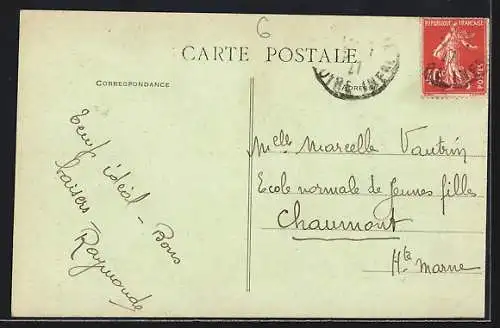 6
CARTE POSTALE
27
CORRESPONDANCE
REPUBLIQUE FRANÇAISE
POSTES
Temps idéal - Bons
baisers -
Raymonde
Melle Marcelle Vautrin
Ecole normale de Jeunes filles
Chaumont
Hte Marne